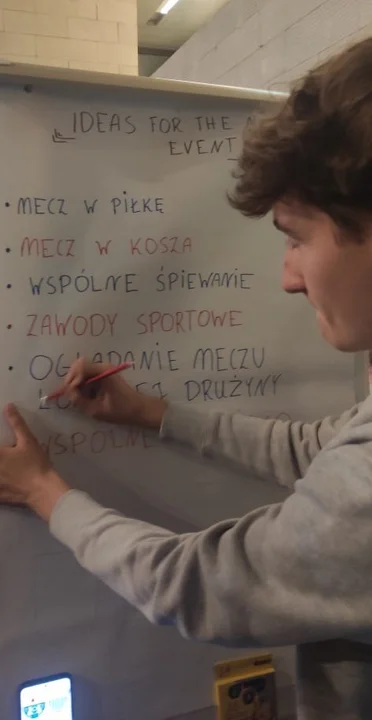 IDEAS FOR THE
EVENT
• MECZ W PIŁKĘ
• MECZ W KOSZA
• WSPÓLNE ŚPIEWANIE
• ZAWODY SPORTOWE
• OGLĄDANIE MECZU
DRUŻYNY
WSPÓLNE